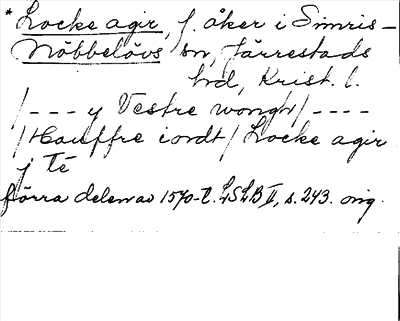 * Locke agir, f. åker i Simris-
Nöbbelövs sn, Järrestads
hrd, Krist. l.
/--- y Vestre wongh/----
/Hauffre iordt/ Locke agir
j Té
förra delen av 1570-t. LSLB II, s. 243. orig.